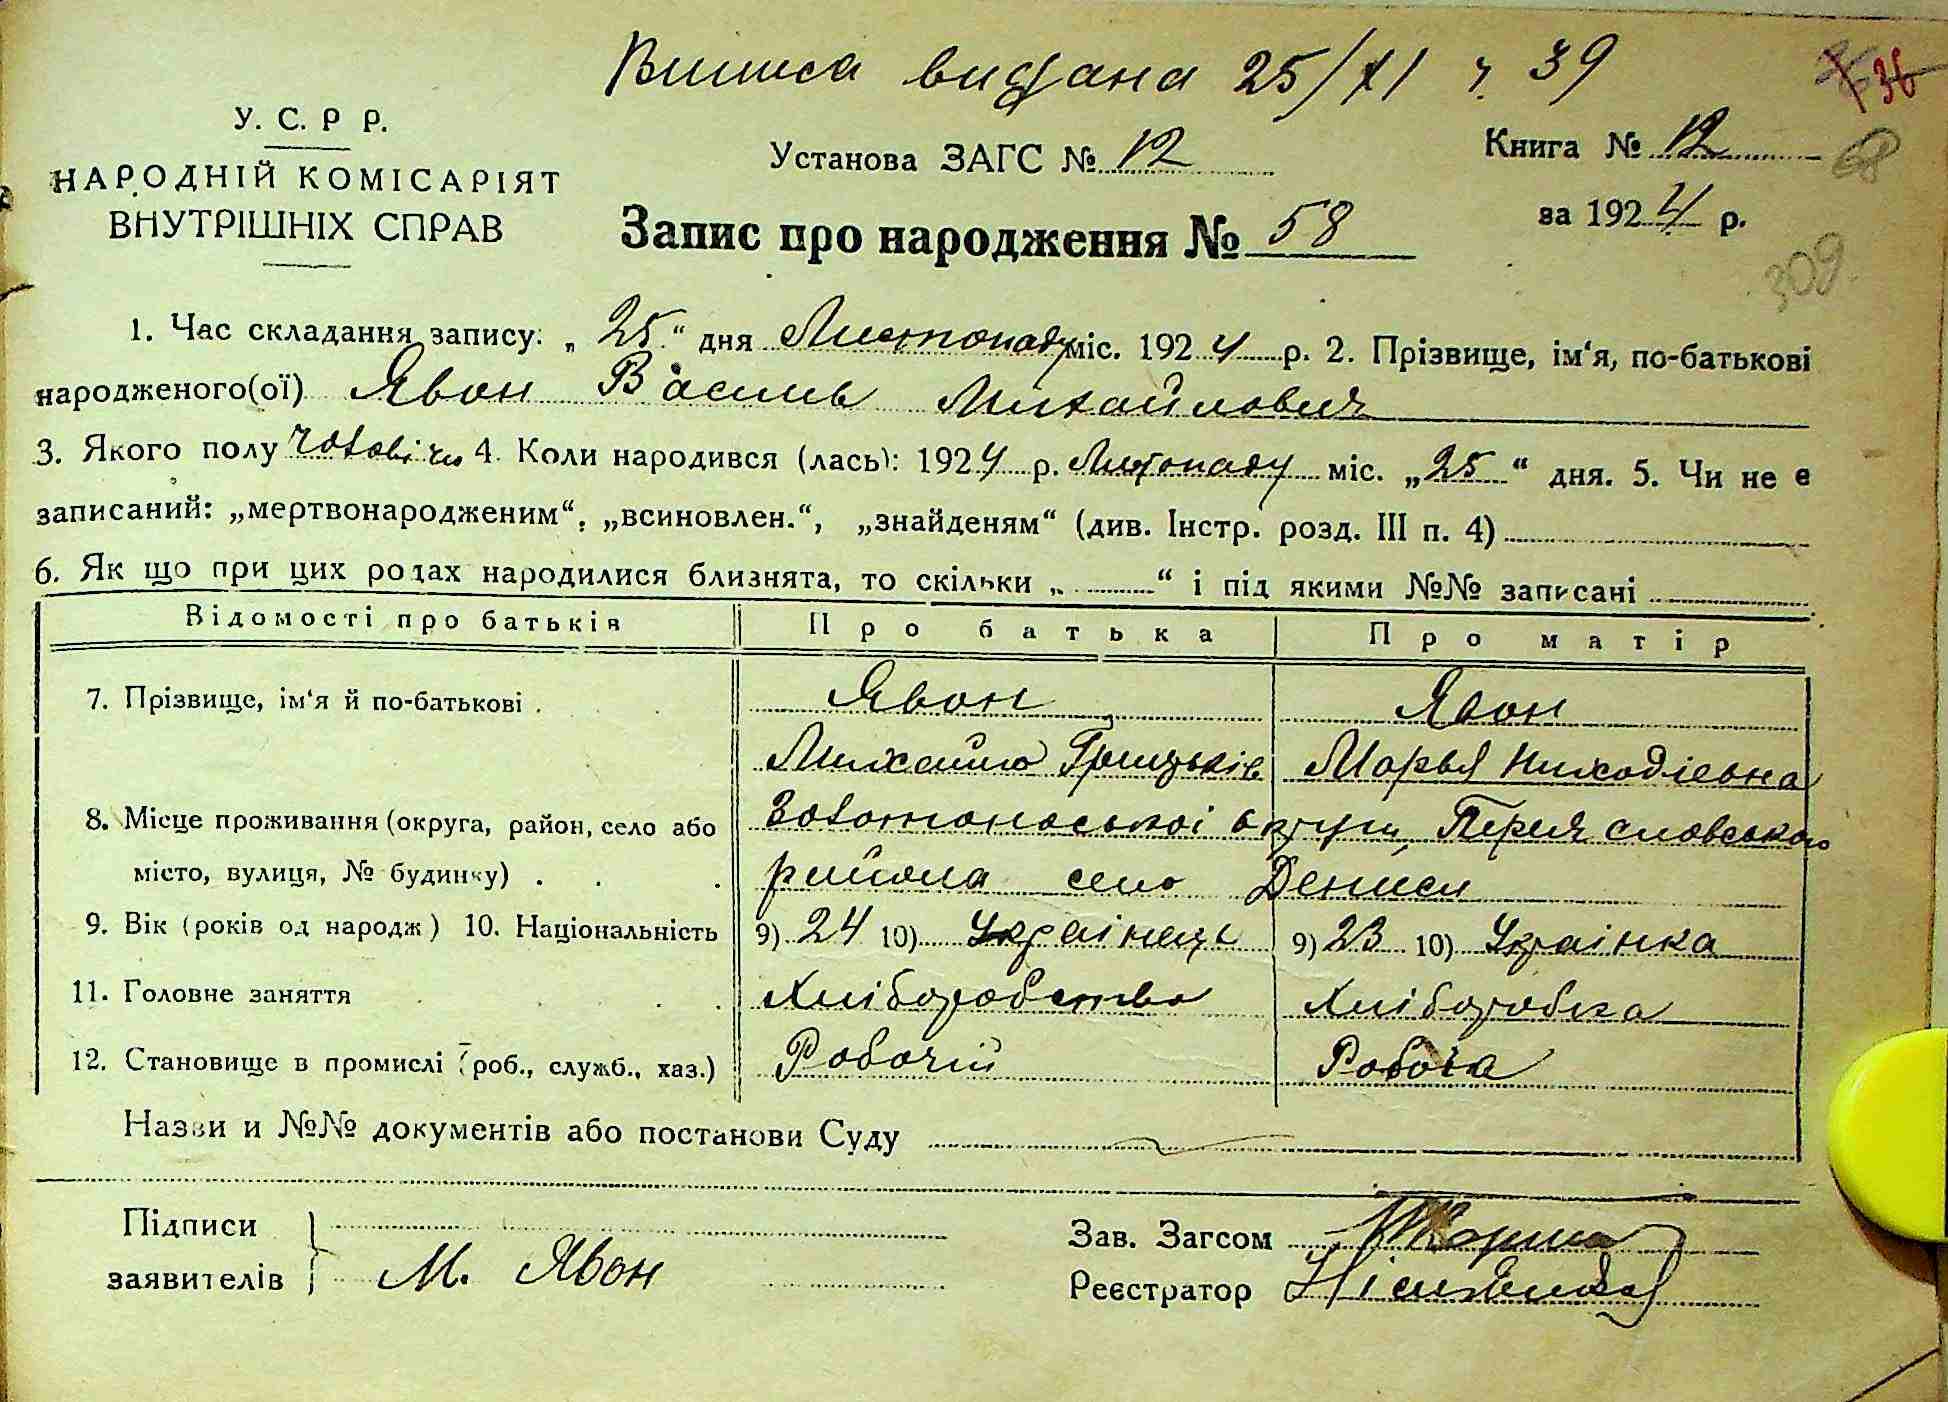 Виписа видана 25/XI 39
36
У. С. Р Р.
НАРОДНІЙ КОМІСАРІЯТ
ВНУТРІШНІХ СПРАВ
Установа ЗАГС № 12
Книга № 12
68
за 1924 р.
Запис про народження № 58
309.
1. Час складання запису: „25“ дня Листопаду міс. 1924 р. 2. Прізвище, ім‘я, по-батькові
народженого(ої) Явон Василь Михайлович
3. Якого полу чоловічо 4. Коли народився (лась): 1924 р. Листопаду міс. „25“ дня. 5. Чи не є
записаний: „мертвонародженим“, „всиновлен.“, „знайденям“ (див. Інстр. розд. III п. 4)
6. Як що при цих родах народилися близнята, то скільки „ “ і під якими №№ записані
Відомості про батьків Про батька Про матір
7. Прізвище, ім‘я й по-батькові . Явон Явон
Михайло Грицьків Марья Никодіевна
8. Місце проживання (округа, район, село або Золотоноської округи, Переяславського
місто, вулиця, № будинку) . . . района село Дениси
9. Вік (років од народж) 10. Національність 9) 24 10) Українець 9) 23 10) Українка
11. Головне заняття . . . Хліборобство Хліборобка
12. Становище в промислі (роб., служб., хаз.) Робочій Робоча
Назви и №№ документів або постанови Суду
Підписи
заявителів М. Явон
Зав. Загсом
Реєстратор